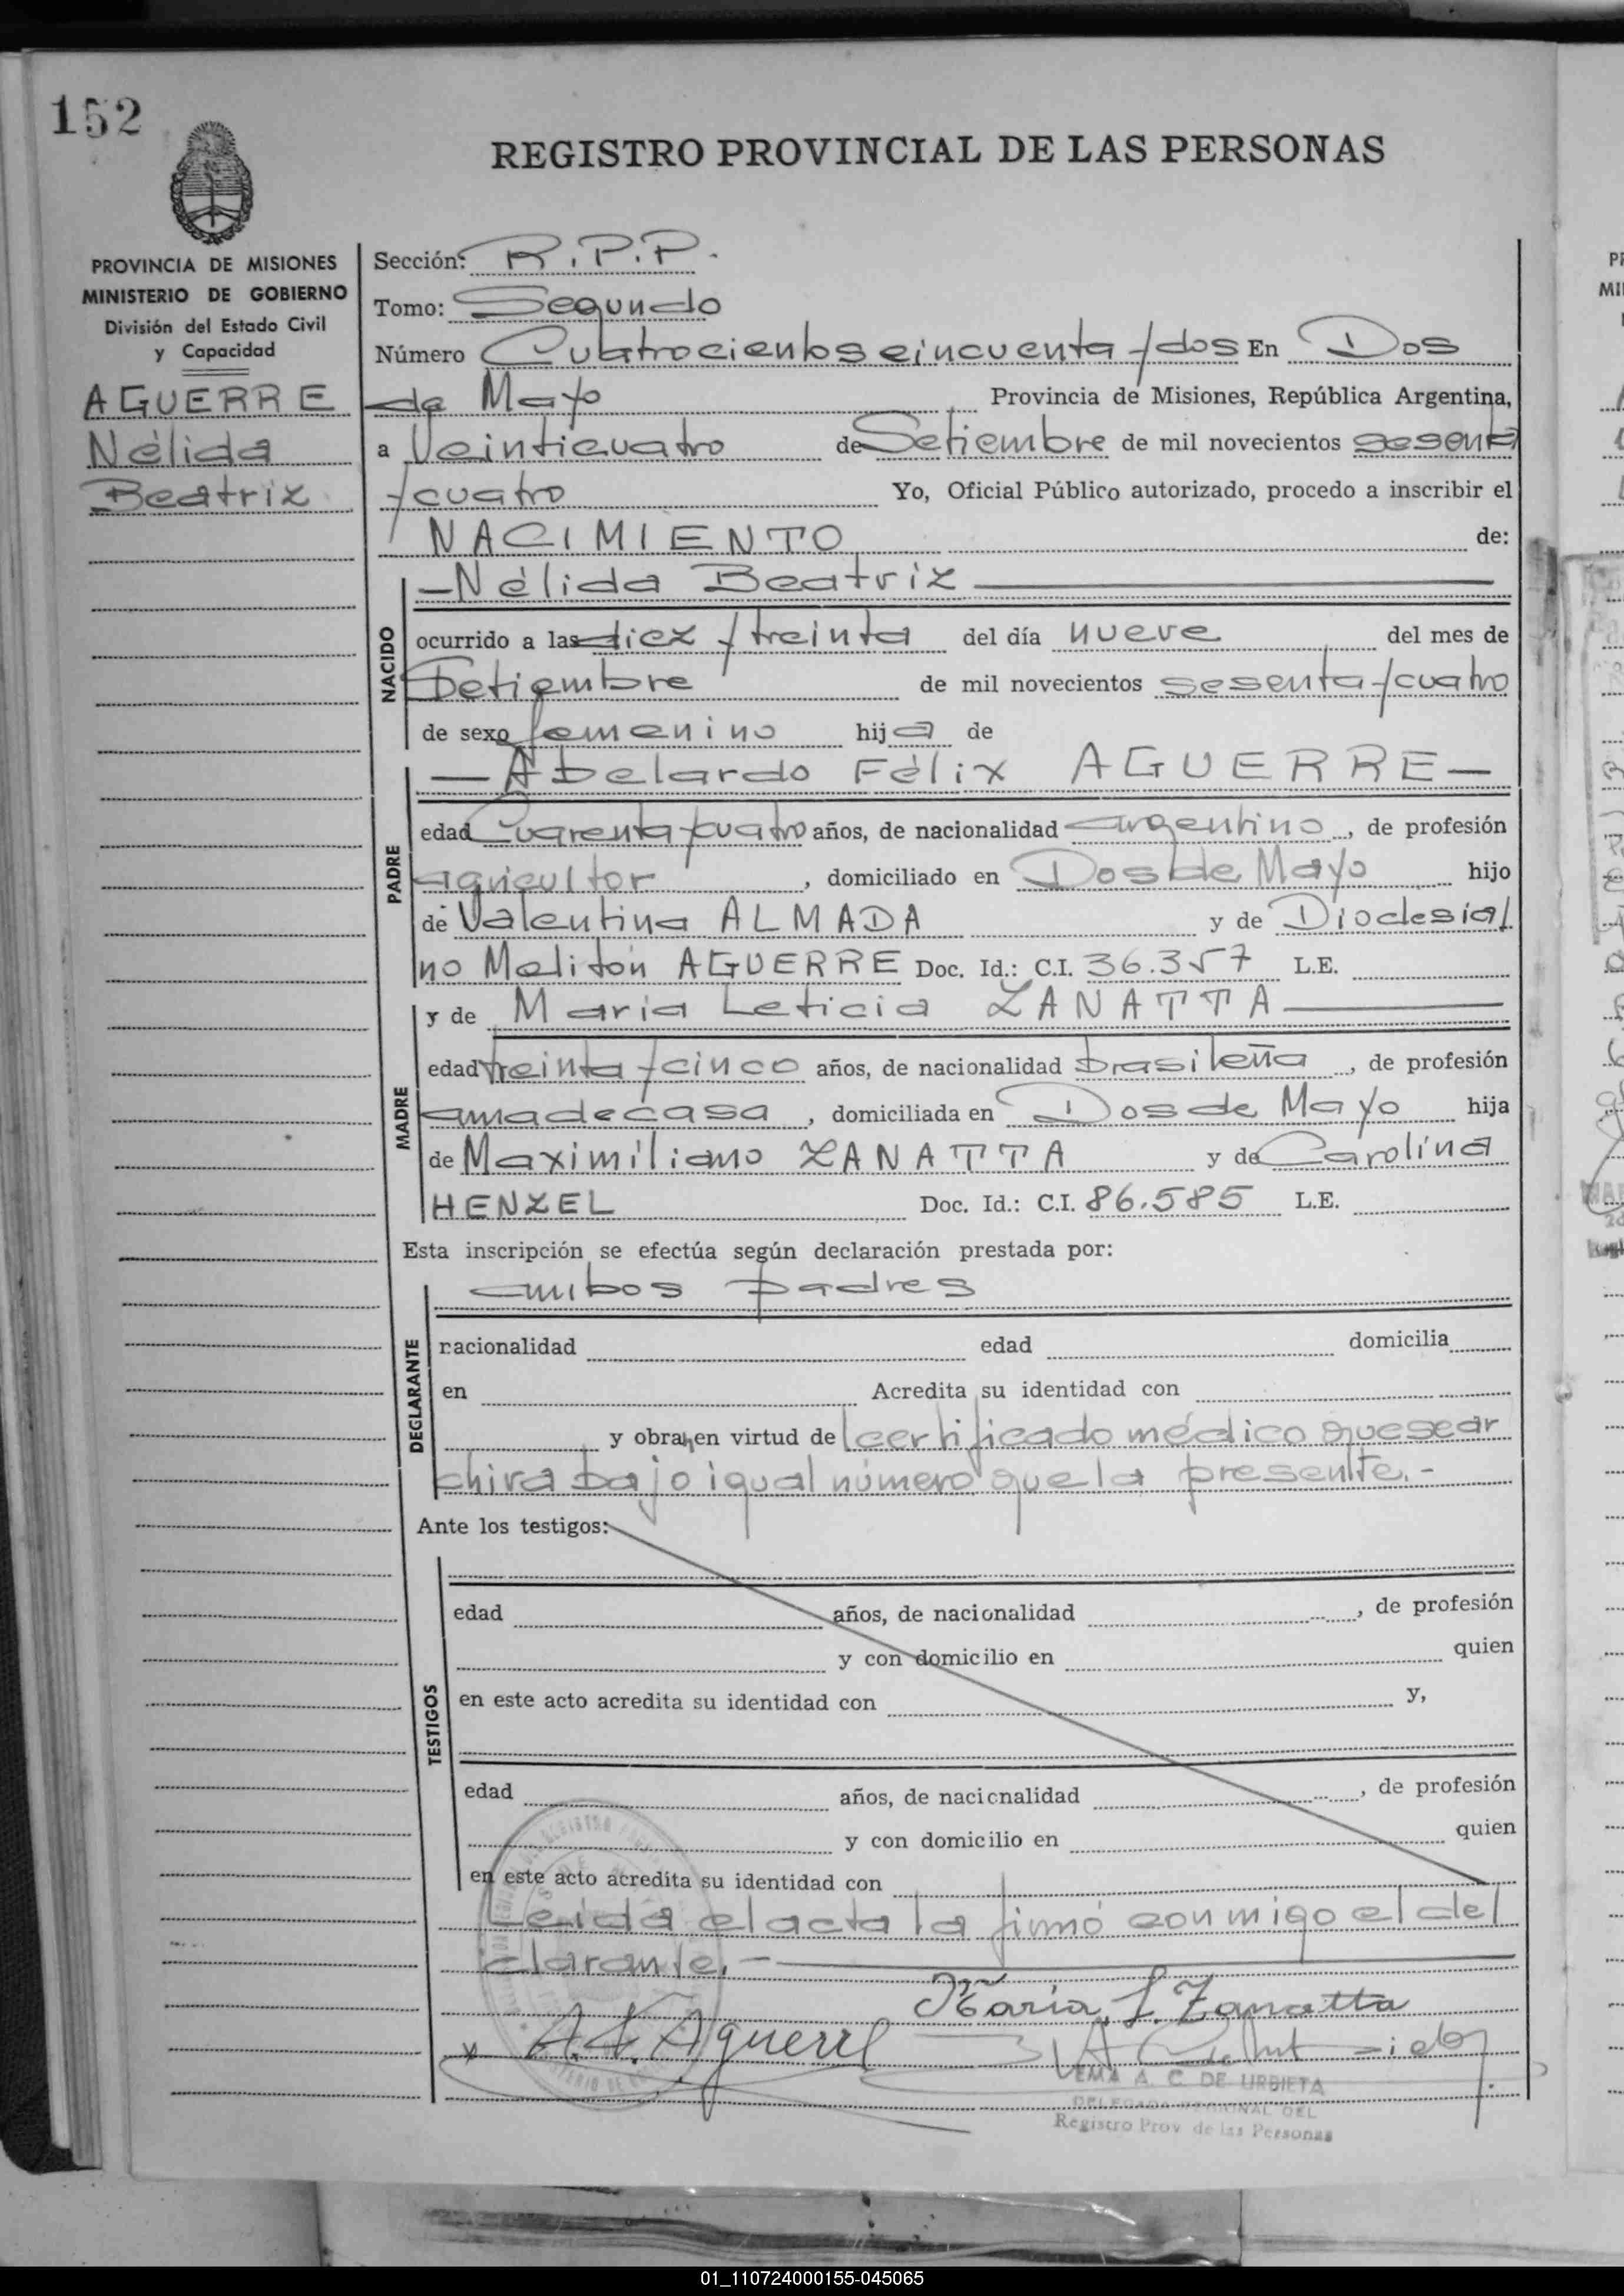 152
REGISTRO PROVINCIAL DE LAS PERSONAS
PROVINCIA DE MISIONES
MINISTERIO DE GOBIERNO
División del Estado Civil
y Capacidad
AGUERRE
Nélida
Beatriz
Sección: R.P.P.
Tomo: Segundo
Número Cuatrocientos cincuenta y dos En Dos
de Mayo Provincia de Misiones, República Argentina,
a Veinticuatro de Setiembre de mil novecientos sesenta
y cuatro Yo, Oficial Público autorizado, procedo a inscribir el
NACIMIENTO de:
NACIDO
—Nélida Beatriz
ocurrido a las diez y treinta del día nueve del mes de
Setiembre de mil novecientos sesenta y cuatro
de sexo femenino hija de
PADRE
—Abelardo Félix AGUERRE—
edad Cuarenta y cuatro años, de nacionalidad argentino, de profesión
agricultor, domiciliado en Dos de Mayo hijo
de Valentina ALMADA y de Dioclesia/
no Meliton AGUERRE Doc. Id.: C.I. 36.357 L.E.
MADRE
y de Maria Leticia ZANATTA
edad treinta y cinco años, de nacionalidad brasileña, de profesión
ama de casa, domiciliada en Dos de Mayo hija
de Maximiliano ZANATTA y de Carolina
HENZEL Doc. Id.: C.I. 86.585 L.E.
Esta inscripción se efectúa según declaración prestada por:
DECLARANTE
ambos padres
nacionalidad edad domicilia
en Acredita su identidad con
y obran en virtud de certificado médico que se ar
chiva bajo igual número que la presente.-
Ante los testigos:
TESTIGOS
edad años, de nacionalidad , de profesión
y con domicilio en quien
en este acto acredita su identidad con y,
edad años, de nacionalidad , de profesión
y con domicilio en quien
en este acto acredita su identidad con
Leida el acta la firmó conmigo el de/
clarante.-
María L. Zanatta
A.F. Aguerre
EMA A. C. DE URBIETA
DELEGADA REGIONAL DEL
Registro Prov de las Personas
01_110724000155-045065